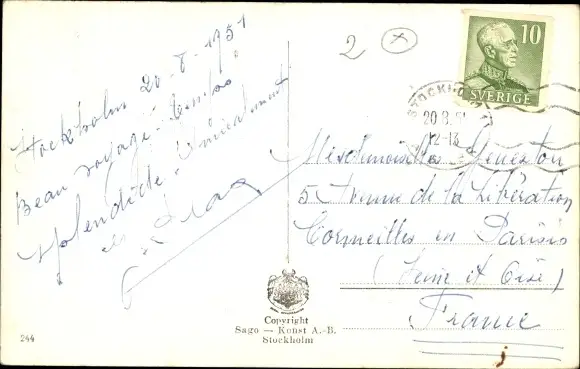 Stockholm 20-8-1951
Beau voyage - temps
splendide -
2
10
SVERIGE
STOCKHOLM
20.8.51
12-13
Mesdemoiselles
5 Avenue de la Libération
Cormeilles en Parisis
(Seine et Oise)
France
Copyright
Sago — Konst A.-B.
Stockholm
244